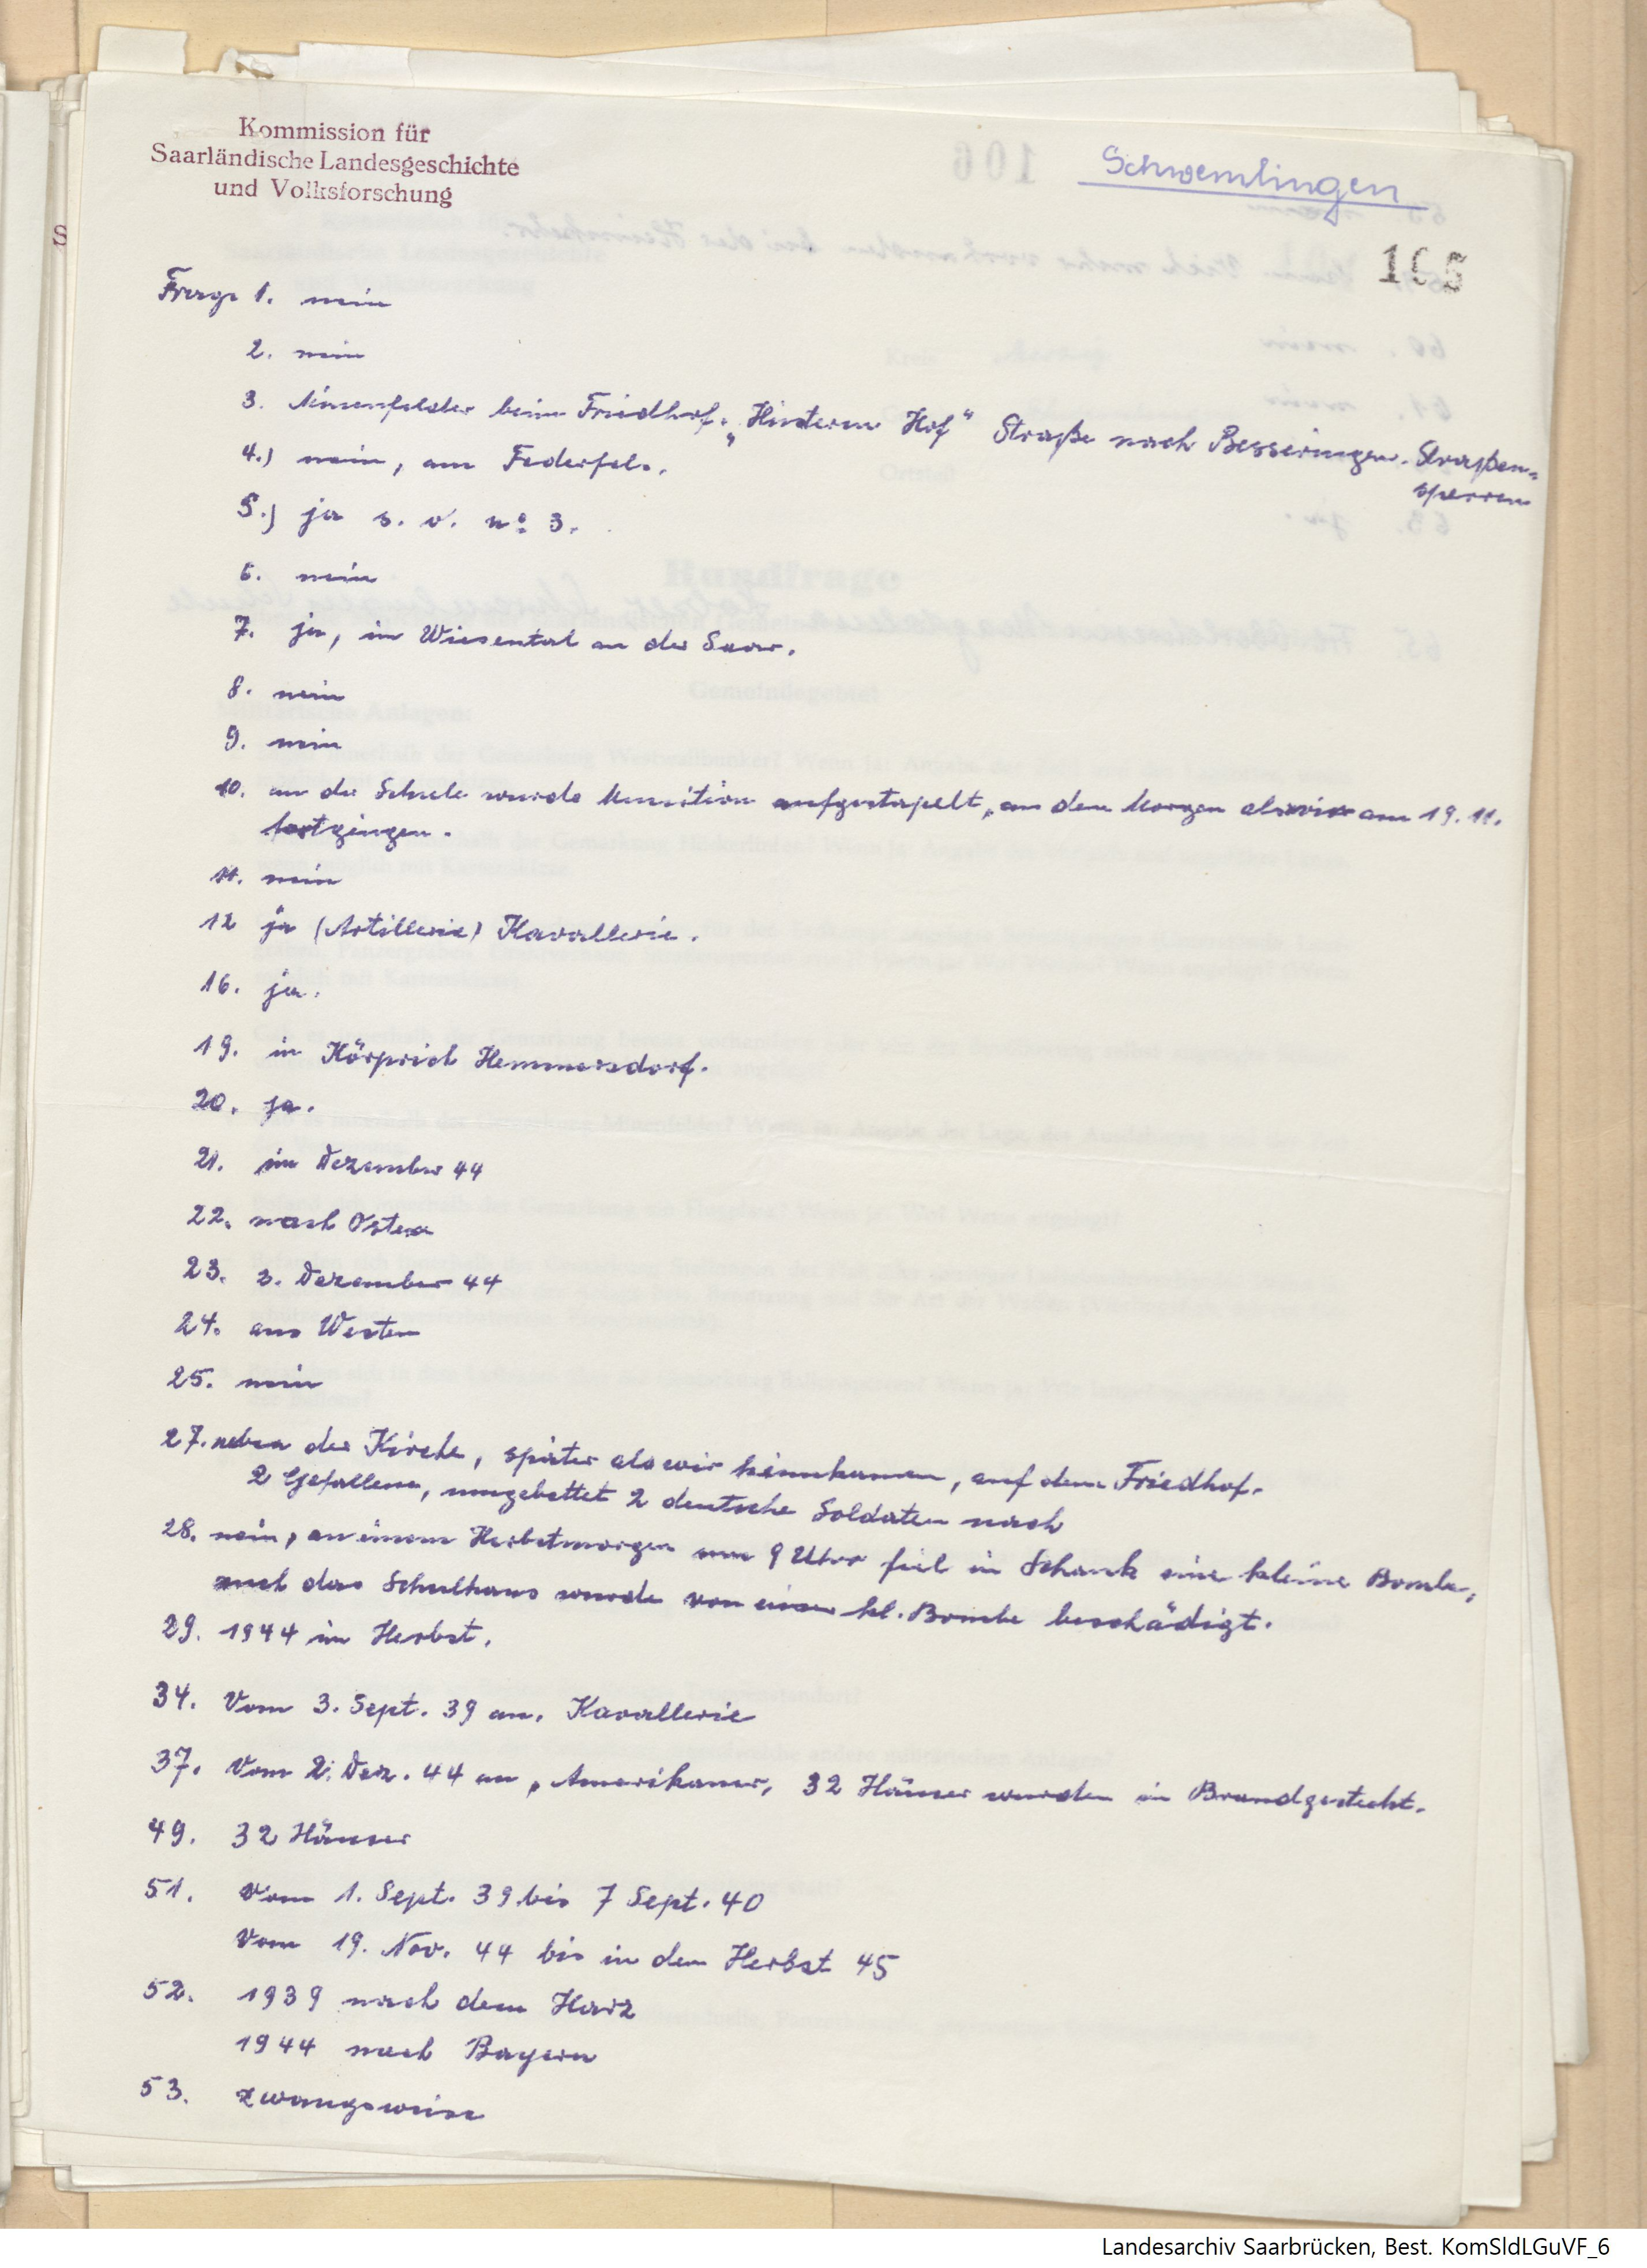 Kommission für
Saarländische Landesgeschichte
und Volksforschung
Schwemlingen
105
Frage 1. nein
2. nein
3. Minenfelder beim Friedhof. „Hinterm Hof" Straße nach Besseringen. Straßen-
sperren
4.) nein, am Federfels.
5.) ja s. o. no 3.
6. nein
7. ja, im Wiesental an der Saar.
8. nein
9. nein
10. an der Schule wurde Munition aufgestapelt, an dem Morgen als wir am 19. 11.
fortgingen.
11. nein
12 ja (Artillerie) Kavallerie.
16. ja.
19. in Körprich Hemmersdorf.
20. ja.
21. im Dezember 44
22. nach Osten
23. 2. Dezember 44
24. aus Westen
25. nein
27. neben der Kirche, später als wir heimkamen, auf dem Friedhof.
2 Gefallene, umgebettet 2 deutsche Soldaten nach
28. nein, an einem Herbstmorgen um 9 Uhr fiel in Schank eine kleine Bombe,
auch das Schulhaus wurde von einer kl. Bombe beschädigt.
29. 1944 im Herbst.
34. Vom 3. Sept. 39 an. Kavallerie
37. Vom 2. Dez. 44 an, Amerikaner, 32 Häuser wurden in Brand gesteckt.
49. 32 Häuser
51. Vom 1. Sept. 39 bis 7 Sept. 40
Vom 19. Nov. 44 bis in den Herbst 45
52. 1939 nach dem Harz
1944 nach Bayern
53. zwangsweise
Landesarchiv Saarbrücken, Best. KomSldLGuVF_6